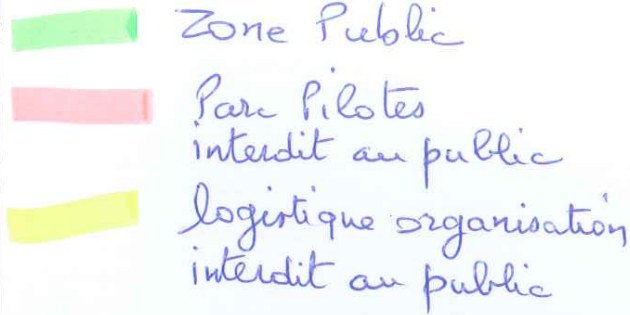 Zone Public
Parc Pilotes
interdit au public
logistique organisation
interdit au public